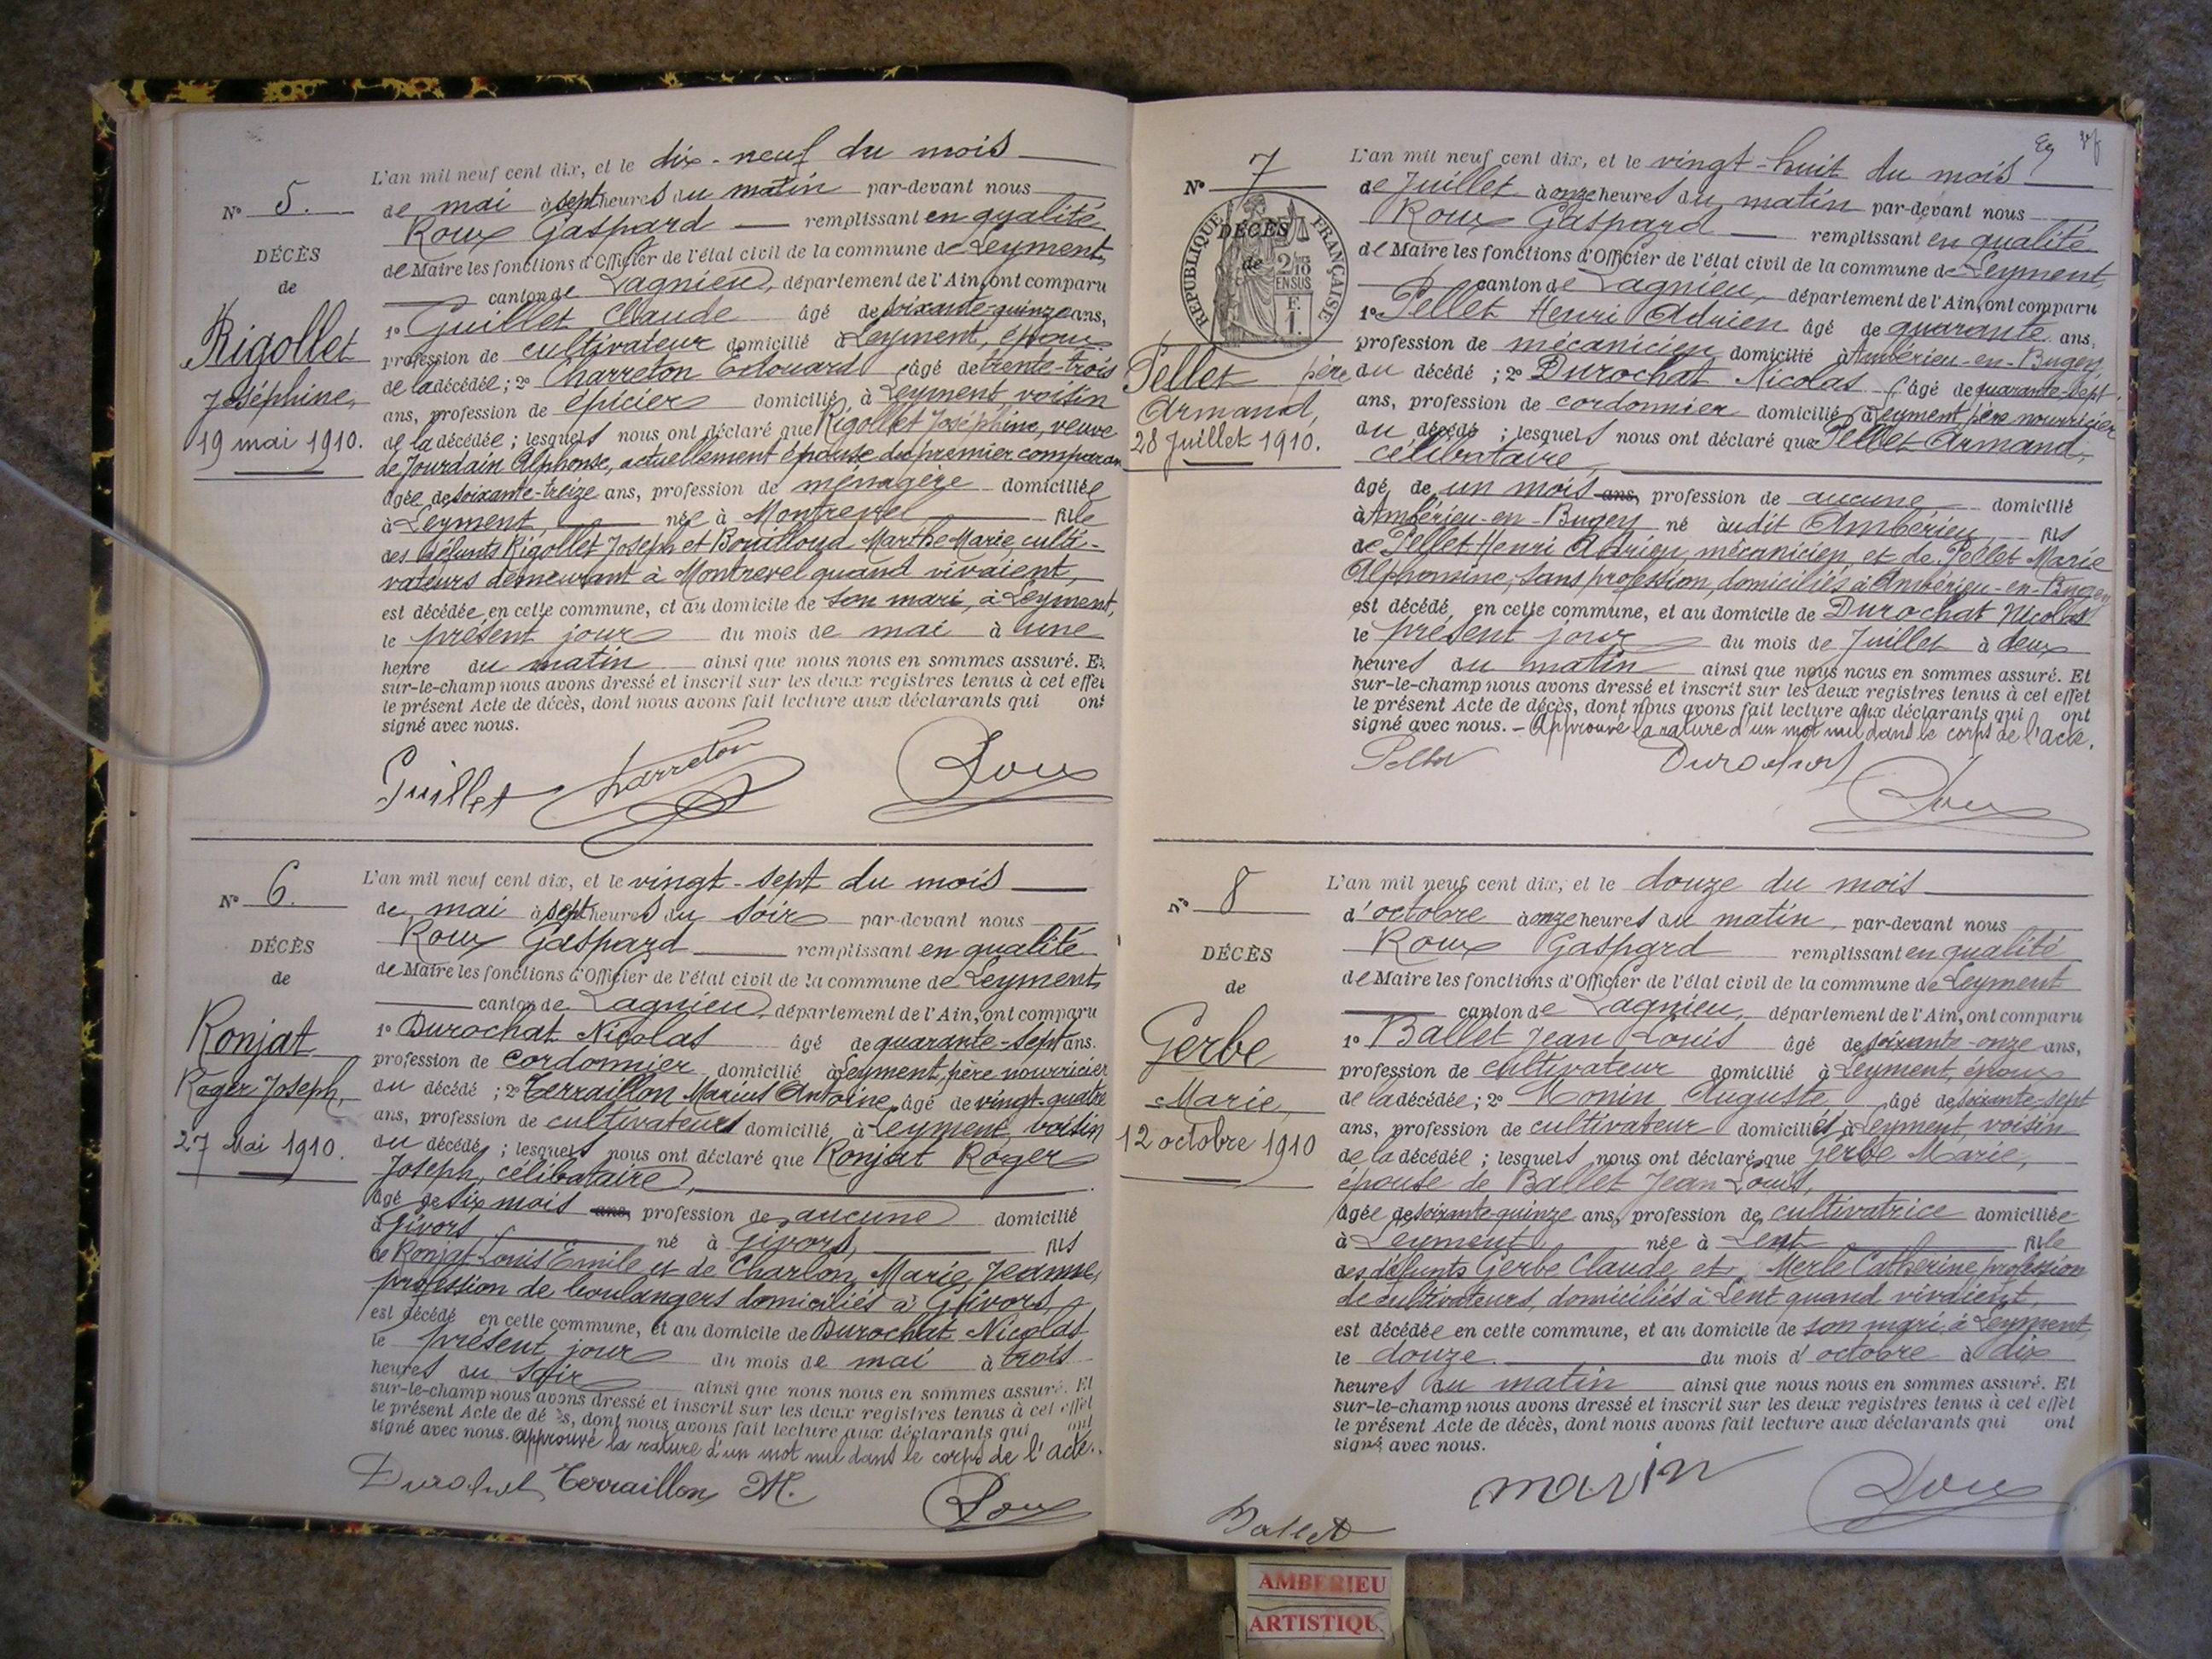 L'an mil neuf cent dix, et le dix-neuf du mois
N° 5.
de mai à sept heures du matin par-devant nous
Roux Gaspard remplissant en qualité
DÉCÈS
de Maire les fonctions d'Officier de l'état civil de la commune de Leyment,
de
canton de Lagnieu, département de l'Ain, ont comparu
1° Guillet Claude âgé de soixante-quinze ans,
Rigollet
profession de cultivateur domicilié à Leyment, époux
de la décédée ; 2° Charreton Edouard âgé de trente-trois
Joséphine,
ans, profession de épicier domicilié à Leyment voisin
19 mai 1910.
de la décédée ; lesquels nous ont déclaré que Rigollet Joséphine, veuve
de Jourdain Alphonse, actuellement épouse du premier comparan
âgée de soixante-treize ans, profession de ménagère domiciliée
à Leyment née à Montrevel fille
des défunts Rigollet Joseph et Bouilloud Marthe Marie, culti-
vateurs demeurant à Montrevel quand vivaient,
est décédée en cette commune, et au domicile de son mari, à Leyment,
le présent jour du mois de mai à une
heure du matin ainsi que nous nous en sommes assuré. Et
sur-le-champ nous avons dressé et inscrit sur les deux registres tenus à cet effet
le présent Acte de décès, dont nous avons fait lecture aux déclarants qui ont
signé avec nous.
Guillet Charreton Roux
L'an mil neuf cent dix, et le vingt-sept du mois
N° 6.
de mai à sept heures du soir par-devant nous
Roux Gaspard remplissant en qualité
DÉCÈS
de Maire les fonctions d'Officier de l'état civil de la commune de Leyment
de
canton de Lagnieu, département de l'Ain, ont comparu
1° Durochat Nicolas âgé de quarante-sept ans.
Ronjat
profession de cordonnier domicilié à Leyment, père nourricier
Roger Joseph,
du décédé ; 2° Terraillon Marius Antoine, âgé de vingt-quatre
ans, profession de cultivateurs domicilié à Leyment, voisin
27 Mai 1910.
du décédé ; lesquels nous ont déclaré que Ronjat Roger
Joseph, célibataire,
âgé de six mois ans, profession de aucune domicilié
à Givors né à Givors, fils
de Ronjat Louis Emile et de Charlon Marie Jeanne,
profession de boulangers domiciliés à Givors,
est décédé en cette commune, et au domicile de Durochat Nicolas
le présent jour du mois de mai à trois
heures du soir ainsi que nous nous en sommes assuré. Et
sur-le-champ nous avons dressé et inscrit sur les deux registres tenus à cet effet
le présent Acte de décès, dont nous avons fait lecture aux déclarants qui ont
signé avec nous. Approuvé la rature d'un mot nul dans le corps de l'acte.
Durochat Terraillon M. Roux
L'an mil neuf cent dix, et le vingt-huit du mois
N° 7
de Juillet à onze heures du matin par-devant nous
Roux Gaspard remplissant en qualité
RÉPUBLIQUE FRANÇAISE
DÉCÈS
de
2/10 EN SUS
F. 1.
de Maire les fonctions d'Officier de l'état civil de la commune de Leyment,
canton de Lagnieu, département de l'Ain, ont comparu
1° Pellet Henri Adrien âgé de quarante ans,
profession de mécanicien domicilié à Ambérieu-en-Bugey,
Pellet
père du décédé ; 2° Durochat Nicolas âgé de quarante-sept
Armand,
ans, profession de cordonnier domicilié à Leyment père nourricier
28 Juillet 1910.
du décédé ; lesquels nous ont déclaré que Pellet Armand,
célibataire
âgé de un mois ans, profession de aucune domicilié
à Ambérieu-en-Bugey né audit Ambérieu fils
de Pellet Henri Adrien mécanicien, et de Pellet Marie
Alphonsine, sans profession, domiciliés à Ambérieu-en-Bugey
est décédé en cette commune, et au domicile de Durochat Nicolas
le présent jour du mois de Juillet à deux
heures du matin ainsi que nous nous en sommes assuré. Et
sur-le-champ nous avons dressé et inscrit sur les deux registres tenus à cet effet
le présent Acte de décès, dont nous avons fait lecture aux déclarants qui ont
signé avec nous. - Approuvé la rature d'un mot nul dans le corps de l'acte.
Pellet Durochat
Roux
L'an mil neuf cent dix, et le douze du mois
N° 8
d'octobre à onze heures du matin par-devant nous
Roux Gaspard remplissant en qualité
DÉCÈS
de Maire les fonctions d'Officier de l'état civil de la commune de Leyment
de
canton de Lagnieu, département de l'Ain, ont comparu
1° Ballet Jean Louis âgé de soixante-onze ans,
Gerbe
profession de cultivateur domicilié à Leyment, époux
Marie,
de la décédée ; 2° Monin Auguste âgé de soixante-sept
ans, profession de cultivateur domiciliés à Leyment, voisin
12 octobre 1910
de la décédée ; lesquels nous ont déclaré que Gerbe Marie,
épouse de Ballet Jean Louis,
âgée de soixante quinze ans, profession de cultivatrice domiciliée
à Leyment née à Lent fille
des défunts Gerbe Claude et Merle Catherine profession
de cultivateurs, domiciliés à Lent quand vivaient,
est décédée en cette commune, et au domicile de son mari, à Leyment
le douze du mois d'octobre à dix
heures du matin ainsi que nous nous en sommes assuré. Et
sur-le-champ nous avons dressé et inscrit sur les deux registres tenus à cet effet
le présent Acte de décès, dont nous avons fait lecture aux déclarants qui ont
signé avec nous.
Ballet monin Roux
AMBERIEU
ARTISTIQU